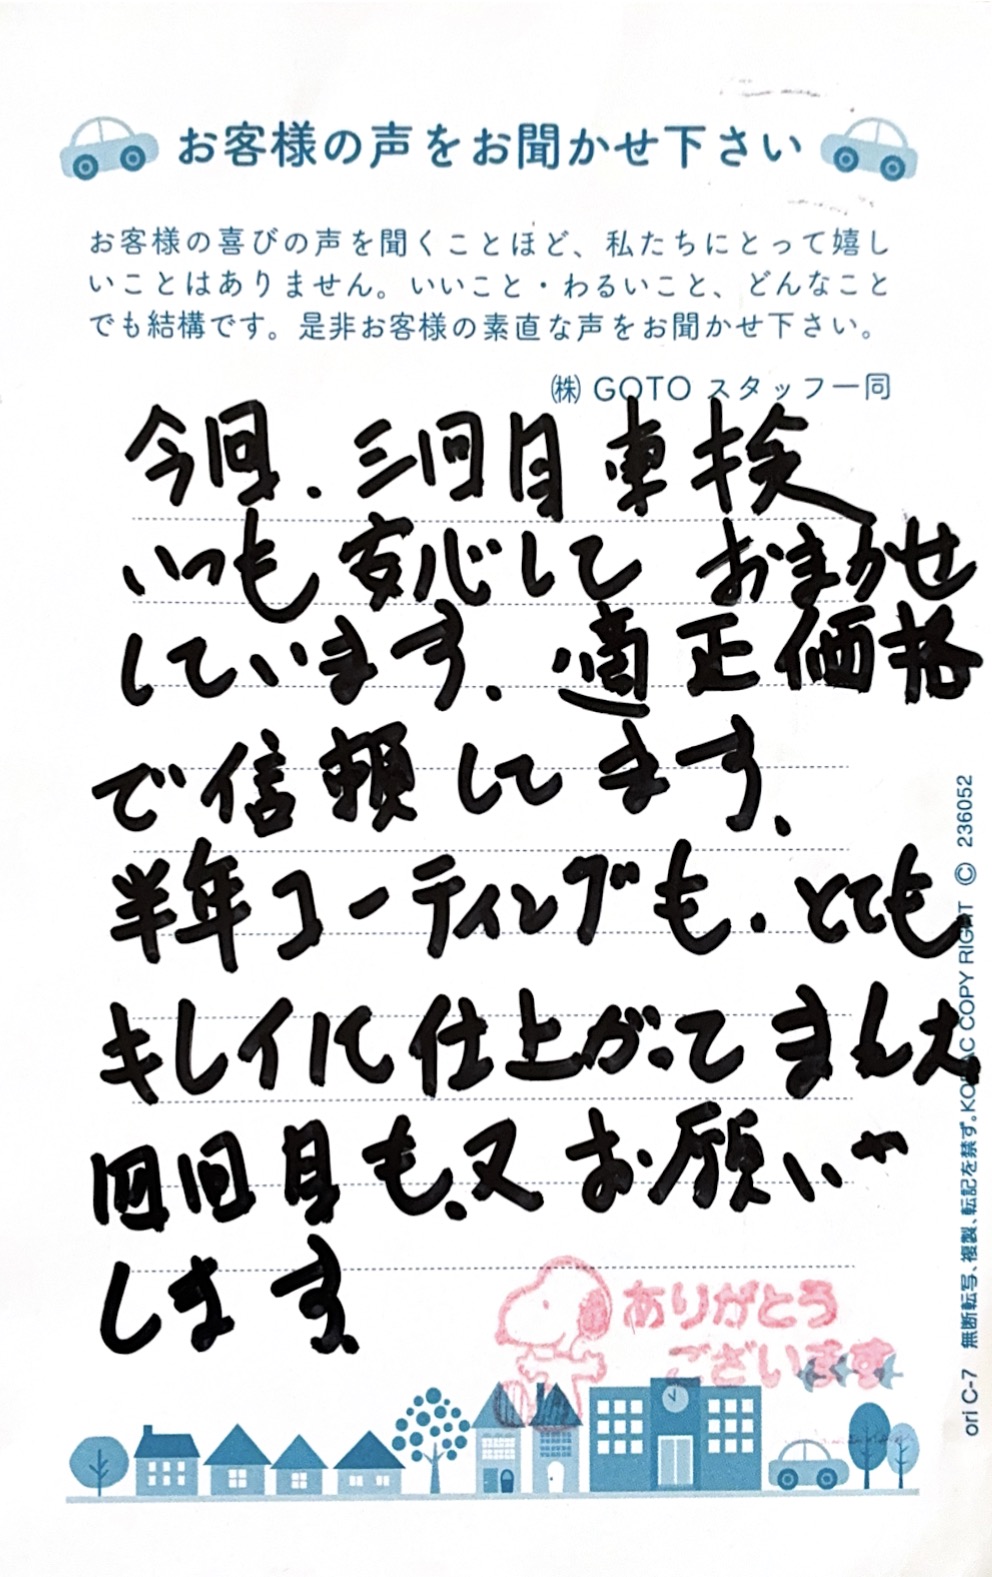 お客様の声をお聞かせ下さい
お客様の喜びの声を聞くことほど、私たちにとって嬉し
いことはありません。いいこと・わるいこと、どんなこと
でも結構です。是非お客様の素直な声をお聞かせ下さい。
㈱ GOTO スタッフ一同
今回.三回目車検
いつも安心して おまかせ
しています.適正価格
で信頼してます、
半年コーティングも.とても
キレイに仕上がってました
四回目も、又お願いや
します、
ありがとう
ございます
ori C-7 無断転写、複製、転記を禁ず。KODAC COPY RIGHT © 236052